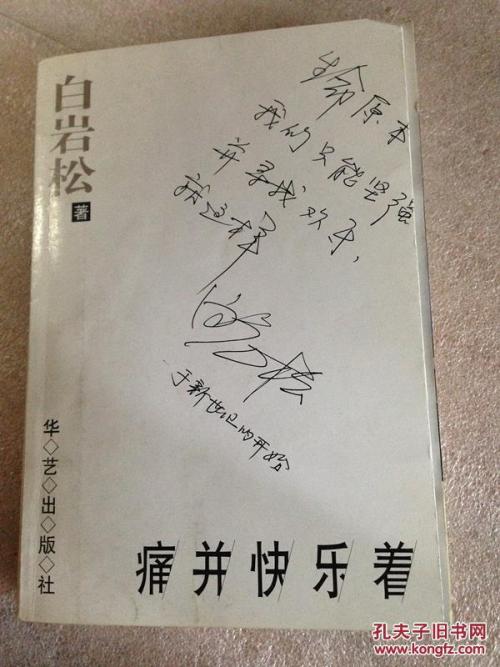 白岩松
著
生命原本
我们只能坚强
并寻找欢乐,
这样
白岩松
于新世纪的开始
华◇艺◇出◇版◇社
痛并快乐着
孔夫子旧书网
www.kongfz.com